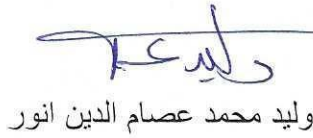 وليد محمد عصام الدين انور